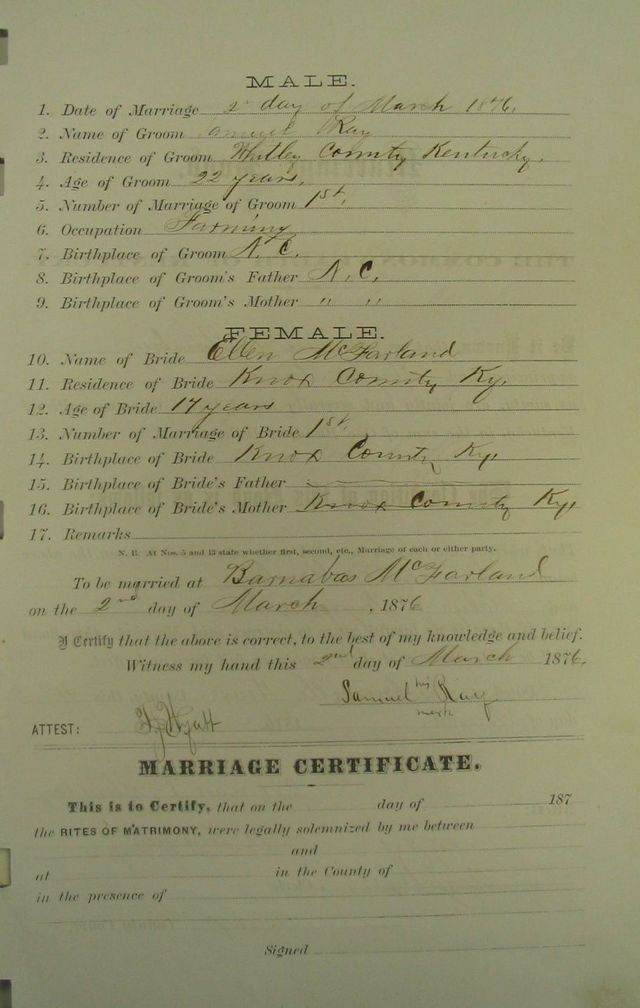 MALE.
1. Date of Marriage 2 day of March 1876.
2. Name of Groom amuel Ray
3. Residence of Groom Whitley County Kentucky.
4. Age of Groom 22 years.
5. Number of Marriage of Groom 1st.
6. Occupation Farming
7. Birthplace of Groom N. C.
8. Birthplace of Groom's Father N. C.
9. Birthplace of Groom's Mother " "
FEMALE.
10. Name of Bride Ellen McFarland
11. Residence of Bride Knox County Ky.
12. Age of Bride 17 years
13. Number of Marriage of Bride 1st.
14. Birthplace of Bride Knox County Ky,
15. Birthplace of Bride's Father
16. Birthplace of Bride's Mother Knox County Ky,
17. Remarks
N. B. At Nos. 5 and 13 state whether first, second, etc., Marriage of each or either party.
To be married at Barnabas McFarland
on the 2nd day of March, 1876
I Certify that the above is correct, to the best of my knowledge and belief.
Witness my hand this 2nd day of March 1876.
Samuel his Ray
mark
ATTEST: Hyatt
MARRIAGE CERTIFICATE.
This is to Certify, that on the day of 187
the RITES OF MATRIMONY, were legally solemnized by me between
and
at in the County of
in the presence of
Signed